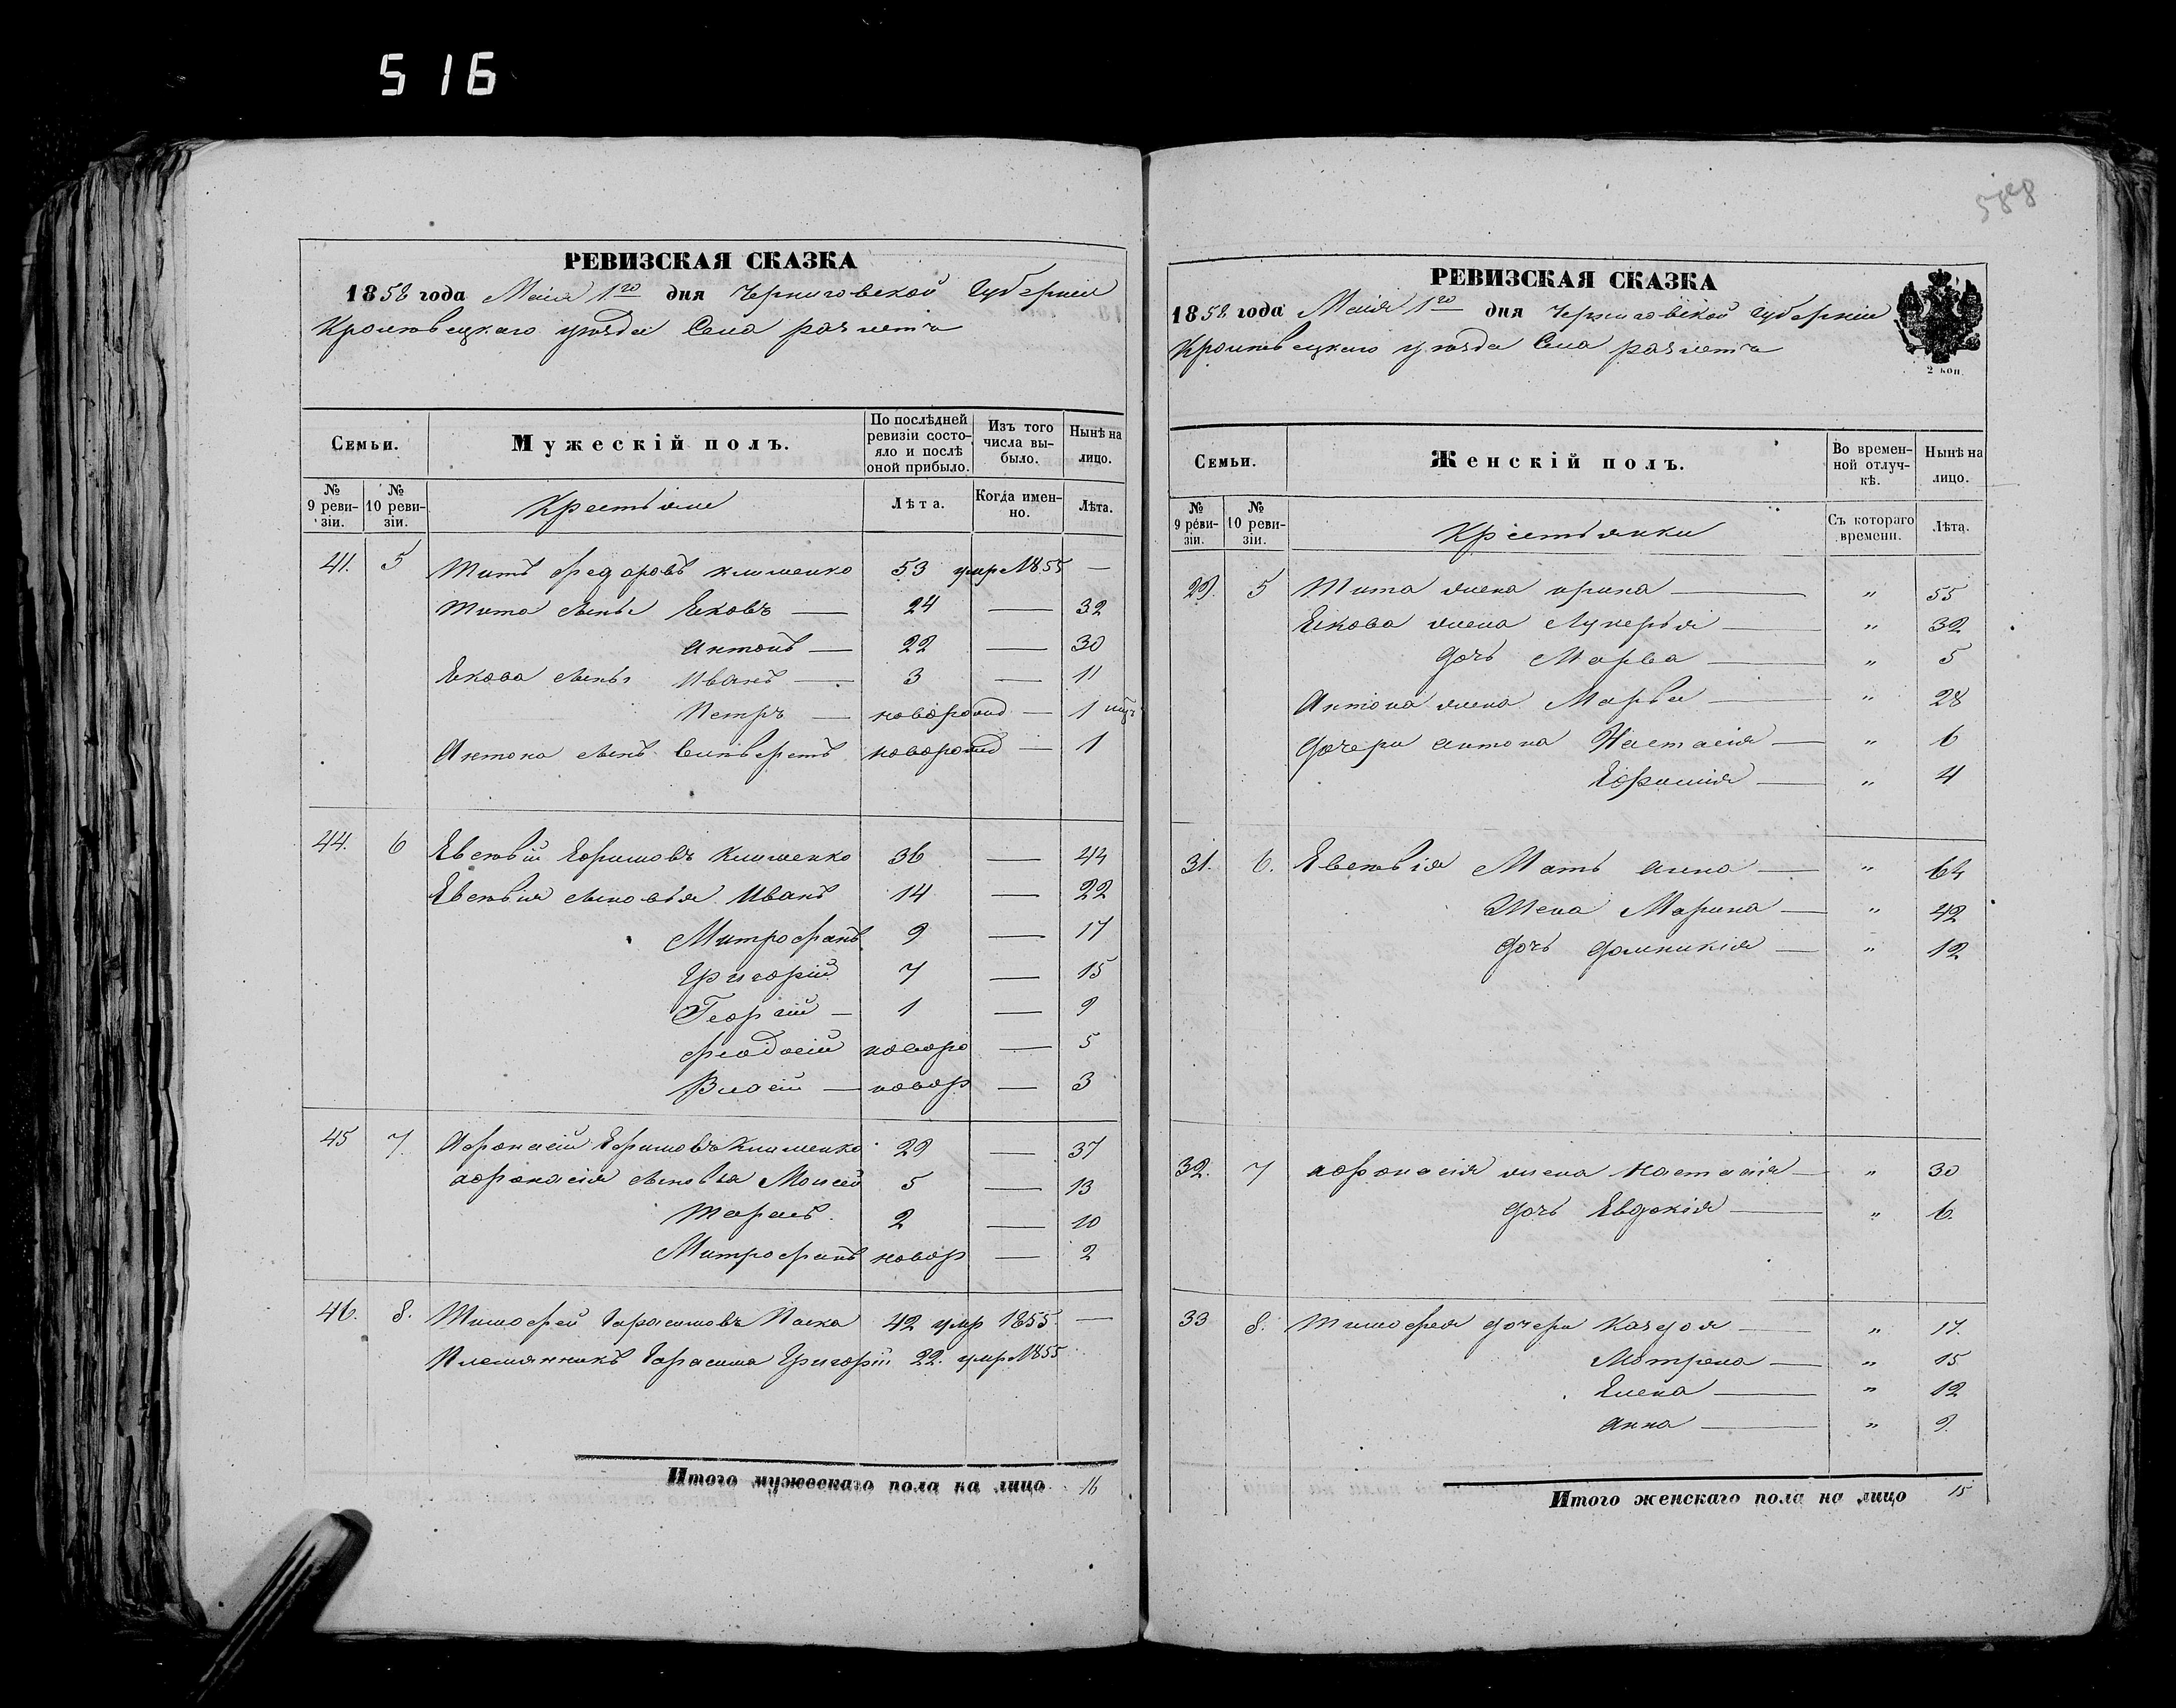 516
РЕВИЗСКАЯ СКАЗКА
1858 года Маія 1го дня Черниговской Губерніи
Кролевецкаго уѣзда Села
Семьи.
Мужескій полъ.
По послѣдней ревизіи состояло и послѣ оной прибыло.
Изъ того числа выбыло.
Нынѣ на лицо.
№ 9 ревизіи.
№ 10 ревизіи.
Крестьяне
Лѣта.
Когда именно.
Лѣта.
41. 5 Титъ Федоровъ Клименко 53 умр 1855 —
Тита сынъ Яковъ — 24 — 32
Антонъ — 22 — 30
Якова сынъ Иванъ — 3 — 11
Петръ — новорожд — 1
Антона сынъ новорожд — 1
44. 6 Евсѣвій Ефимовъ Клименко 36 — 44
Евсѣвія сыновья Иванъ 14 — 22
Митрофанъ 9 — 17
Григорій 7 — 15
Георгій — 1 — 9
Феодосій новоро — 5
Власій — новор — 3
45 7 Афонасій Ефимовъ Клименко 29 — 37
Афонасія сыновья Моисей 5 — 13
Тарасъ 2 — 10
Митрофанъ новор — 2
46. 8. Тимофей Гарасимовъ 42 умр 1855. —
Племянникъ Гарасима Григорій 22. умр 1855
Итого мужескаго пола на лицо 16
РЕВИЗСКАЯ СКАЗКА
1858 года Маія 1го дня Черниговской Губерніи
Кролевецкаго уѣзда Села
2 коп.
Семьи.
Женскій полъ.
Во временной отлучкѣ.
Нынѣ на лицо.
№ 9 ревизіи.
№ 10 ревизіи.
Крестьянки
Съ котораго времени.
Лѣта.
29. 5 Тита жена Ирина — " 55
Якова жена Лукерья — " 32
дочь Марфа — " 5
Антона жена Марья — " 28
дочери Антона Настасія — " 6
Ефимія — " 4
31. 6. Евсѣвія Мать Анна — " 64
Жена Марина — " 42
дочь Домникія — " 12
32. 7 Афонасія жена Настасія — " 30
дочь Евдокія — " 6.
33 8. Тимофея дочери — " 17.
Мотрона — " 15
Елена — " 12
Анна — " 9.
Итого женскаго пола на лицо 15